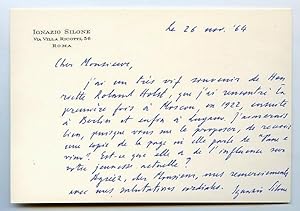 IGNAZIO SILONE
VIA VILLA RICOTTI, 36
ROMA
Le 26 nov. '64
Cher Monsieur,
j'ai un très vif souvenir de Hen
riette Roland Holst, que j'ai rencontré la
première fois à Moscou, en 1922, ensuite
à Berlin et enfin à Lugano. J'aimerais
bien, puisque vous me le proposez, de recevoir
une copie de la page où elle parle de "Pane e
vino". Est-ce que elle a de l'influence sur
votre jeunesse actuelle?
Agréez, cher Monsieur, mes remerciements
avec mes salutations cordiales.
Ignazio Silone